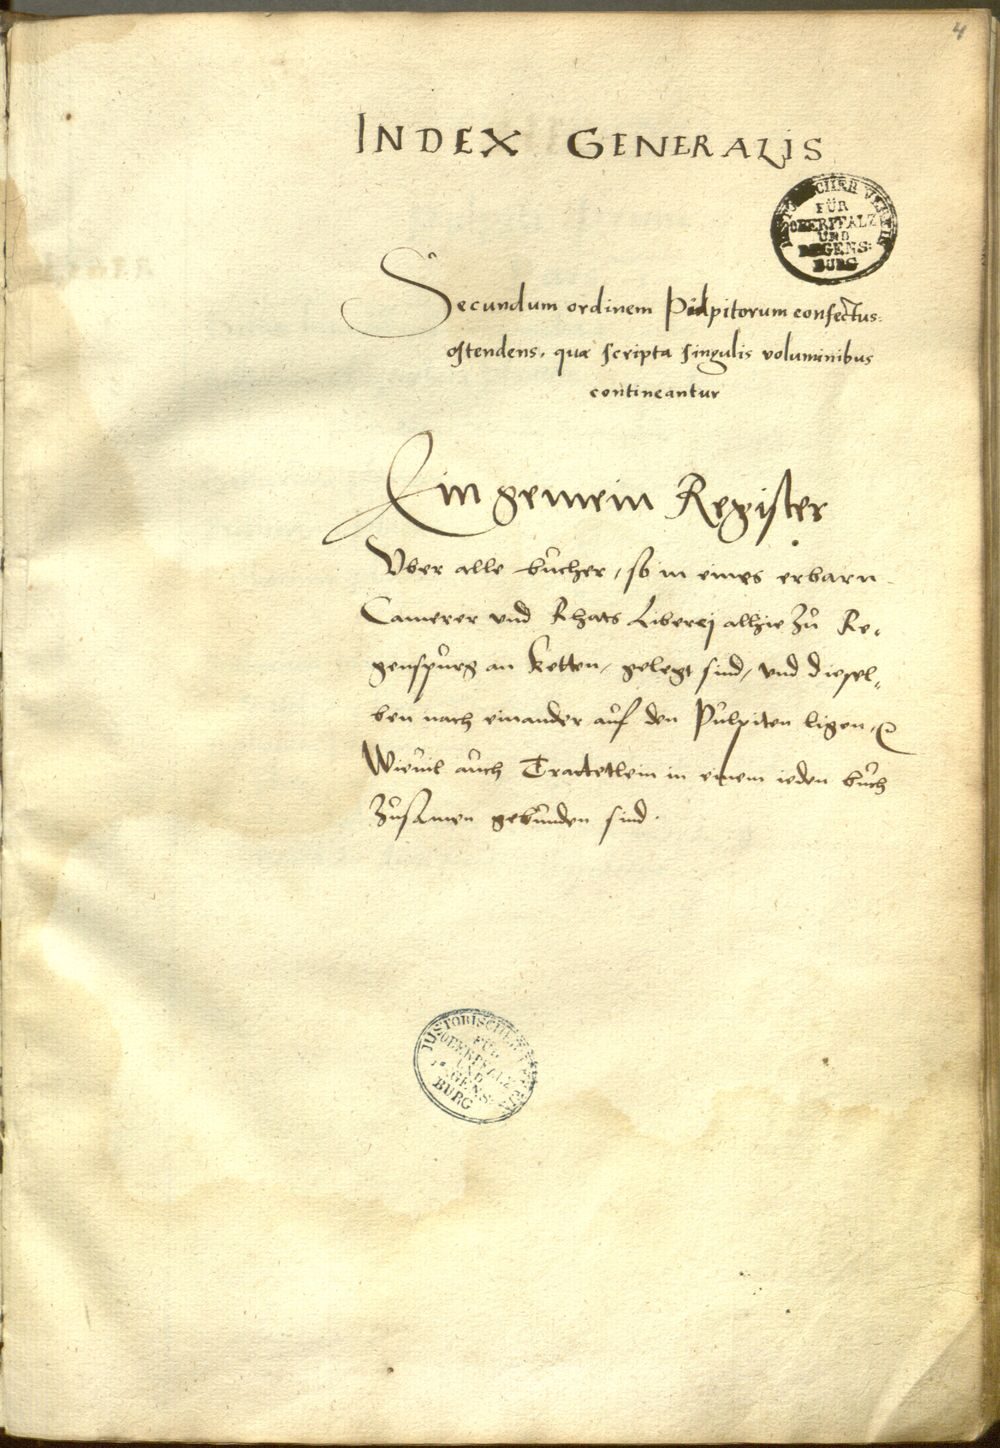 4
INDEX GENERALIS
HISTORISCHER VEREIN
FÜR
OBERPFALZ
UND
REGENS:
BURG
Secundum ordinem Pulpitorum confectus:
ostendens, quæ scripta singulis voluminibus
contineantur
Ein gemein Register
Vber alle bücher, so in eines erbarn
Camerer vnd Rhats Liberej allhie zů Re,
genspůrg an ketten, gelegt sind, vnd diesel,
ben nach einander aůf den Půlpiten ligen,
Wieůil aůch Tractetlein in einem ieden bůch
zůsamen gebůnden sind.
HISTORISCHER VEREIN
FÜR
OBERPFALZ
UND
REGENS:
BURG